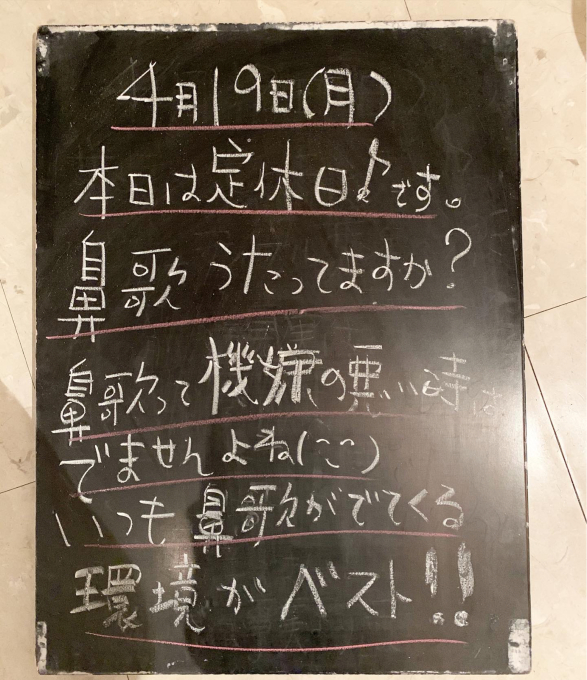 4月19日(月)
本日は定休日♪です。
鼻歌うたってますか?
鼻歌って機嫌の悪い時は
でませんよね(^^)
いつも鼻歌がでてくる
環境がベスト!!